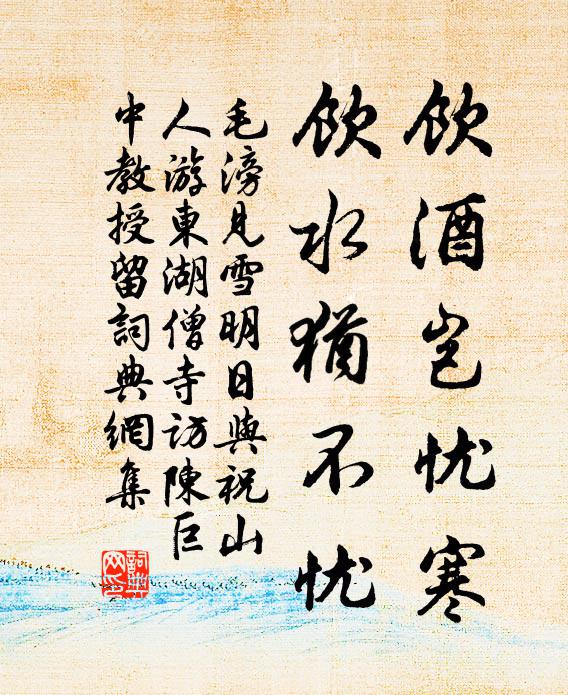 飲酒豈忧寒
飲水猶不忧
毛滂見雪明日與祝山
人游東湖僧寺訪陳巨
中教授留詞典網集